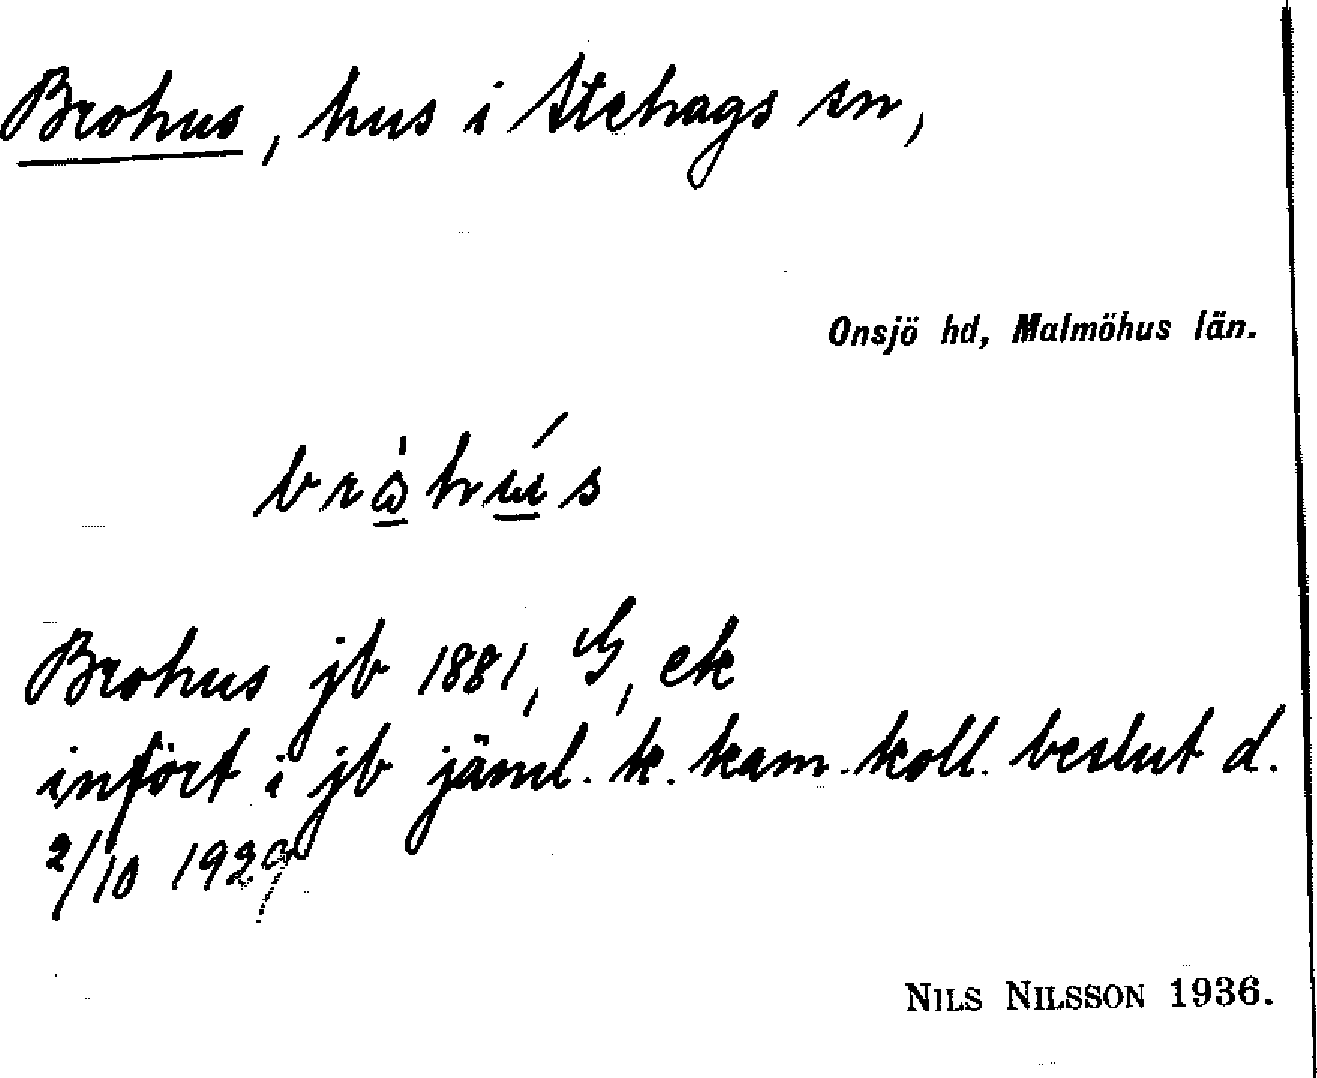 Brohus, hus i Stehags sn,
Onsjö hd, Malmöhus län.
Brohus jb 1881, G, ek
infört i jb jäml. k. kam. koll. beslut d.
2/10 1929
NILS NILSSON 1936.